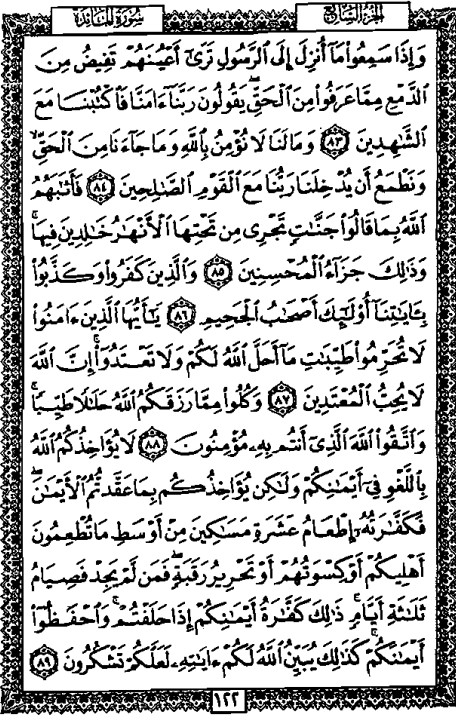 الجزء السابع
سورة المائدة
وَإِذَا سَمِعُوا۟ مَآ أُنزِلَ إِلَى ٱلرَّسُولِ تَرَىٰٓ أَعْيُنَهُمْ تَفِيضُ مِنَ
ٱلدَّمْعِ مِمَّا عَرَفُوا۟ مِنَ ٱلْحَقِّ ۖ يَقُولُونَ رَبَّنَآ ءَامَنَّا فَٱكْتُبْنَا مَعَ
ٱلشَّٰهِدِينَ ٨٣ وَمَا لَنَا لَا نُؤْمِنُ بِٱللَّهِ وَمَا جَآءَنَا مِنَ ٱلْحَقِّ
وَنَطْمَعُ أَن يُدْخِلَنَا رَبُّنَا مَعَ ٱلْقَوْمِ ٱلصَّٰلِحِينَ ٨٤ فَأَثَٰبَهُمُ
ٱللَّهُ بِمَا قَالُوا۟ جَنَّٰتٍ تَجْرِى مِن تَحْتِهَا ٱلْأَنْهَٰرُ خَٰلِدِينَ فِيهَا ۚ
وَذَٰلِكَ جَزَآءُ ٱلْمُحْسِنِينَ ٨٥ وَٱلَّذِينَ كَفَرُوا۟ وَكَذَّبُوا۟
بِـَٔايَٰتِنَآ أُو۟لَٰٓئِكَ أَصْحَٰبُ ٱلْجَحِيمِ ٨٦ يَٰٓأَيُّهَا ٱلَّذِينَ ءَامَنُوا۟
لَا تُحَرِّمُوا۟ طَيِّبَٰتِ مَآ أَحَلَّ ٱللَّهُ لَكُمْ وَلَا تَعْتَدُوٓا۟ ۚ إِنَّ ٱللَّهَ
لَا يُحِبُّ ٱلْمُعْتَدِينَ ٨٧ وَكُلُوا۟ مِمَّا رَزَقَكُمُ ٱللَّهُ حَلَٰلًا طَيِّبًا ۚ
وَٱتَّقُوا۟ ٱللَّهَ ٱلَّذِىٓ أَنتُم بِهِۦ مُؤْمِنُونَ ٨٨ لَا يُؤَاخِذُكُمُ ٱللَّهُ
بِٱللَّغْوِ فِىٓ أَيْمَٰنِكُمْ وَلَٰكِن يُؤَاخِذُكُم بِمَا عَقَّدتُّمُ ٱلْأَيْمَٰنَ ۖ
فَكَفَّٰرَتُهُۥٓ إِطْعَامُ عَشَرَةِ مَسَٰكِينَ مِنْ أَوْسَطِ مَا تُطْعِمُونَ
أَهْلِيكُمْ أَوْ كِسْوَتُهُمْ أَوْ تَحْرِيرُ رَقَبَةٍ ۖ فَمَن لَّمْ يَجِدْ فَصِيَامُ
ثَلَٰثَةِ أَيَّامٍ ۚ ذَٰلِكَ كَفَّٰرَةُ أَيْمَٰنِكُمْ إِذَا حَلَفْتُمْ ۚ وَٱحْفَظُوٓا۟
أَيْمَٰنَكُمْ ۚ كَذَٰلِكَ يُبَيِّنُ ٱللَّهُ لَكُمْ ءَايَٰتِهِۦ لَعَلَّكُمْ تَشْكُرُونَ ٨٩
١٢٢